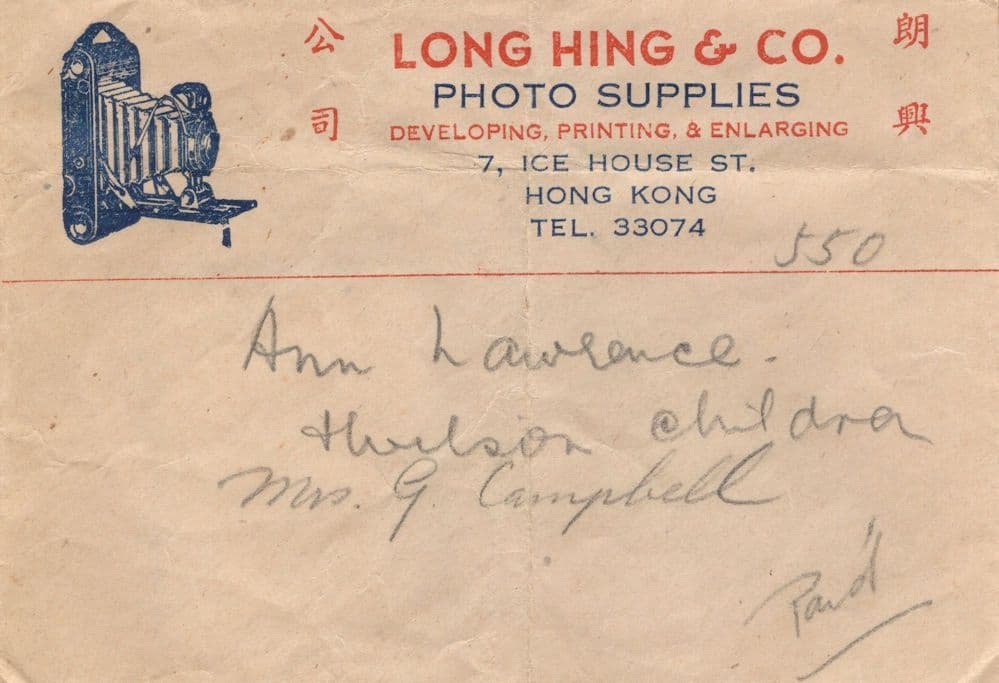 公司
朗興
LONG HING & CO.
PHOTO SUPPLIES
DEVELOPING, PRINTING, & ENLARGING
7, ICE HOUSE ST.
HONG KONG
TEL. 33074
550
Ann Lawrence.
children
Mrs. G. Campbell
Paid